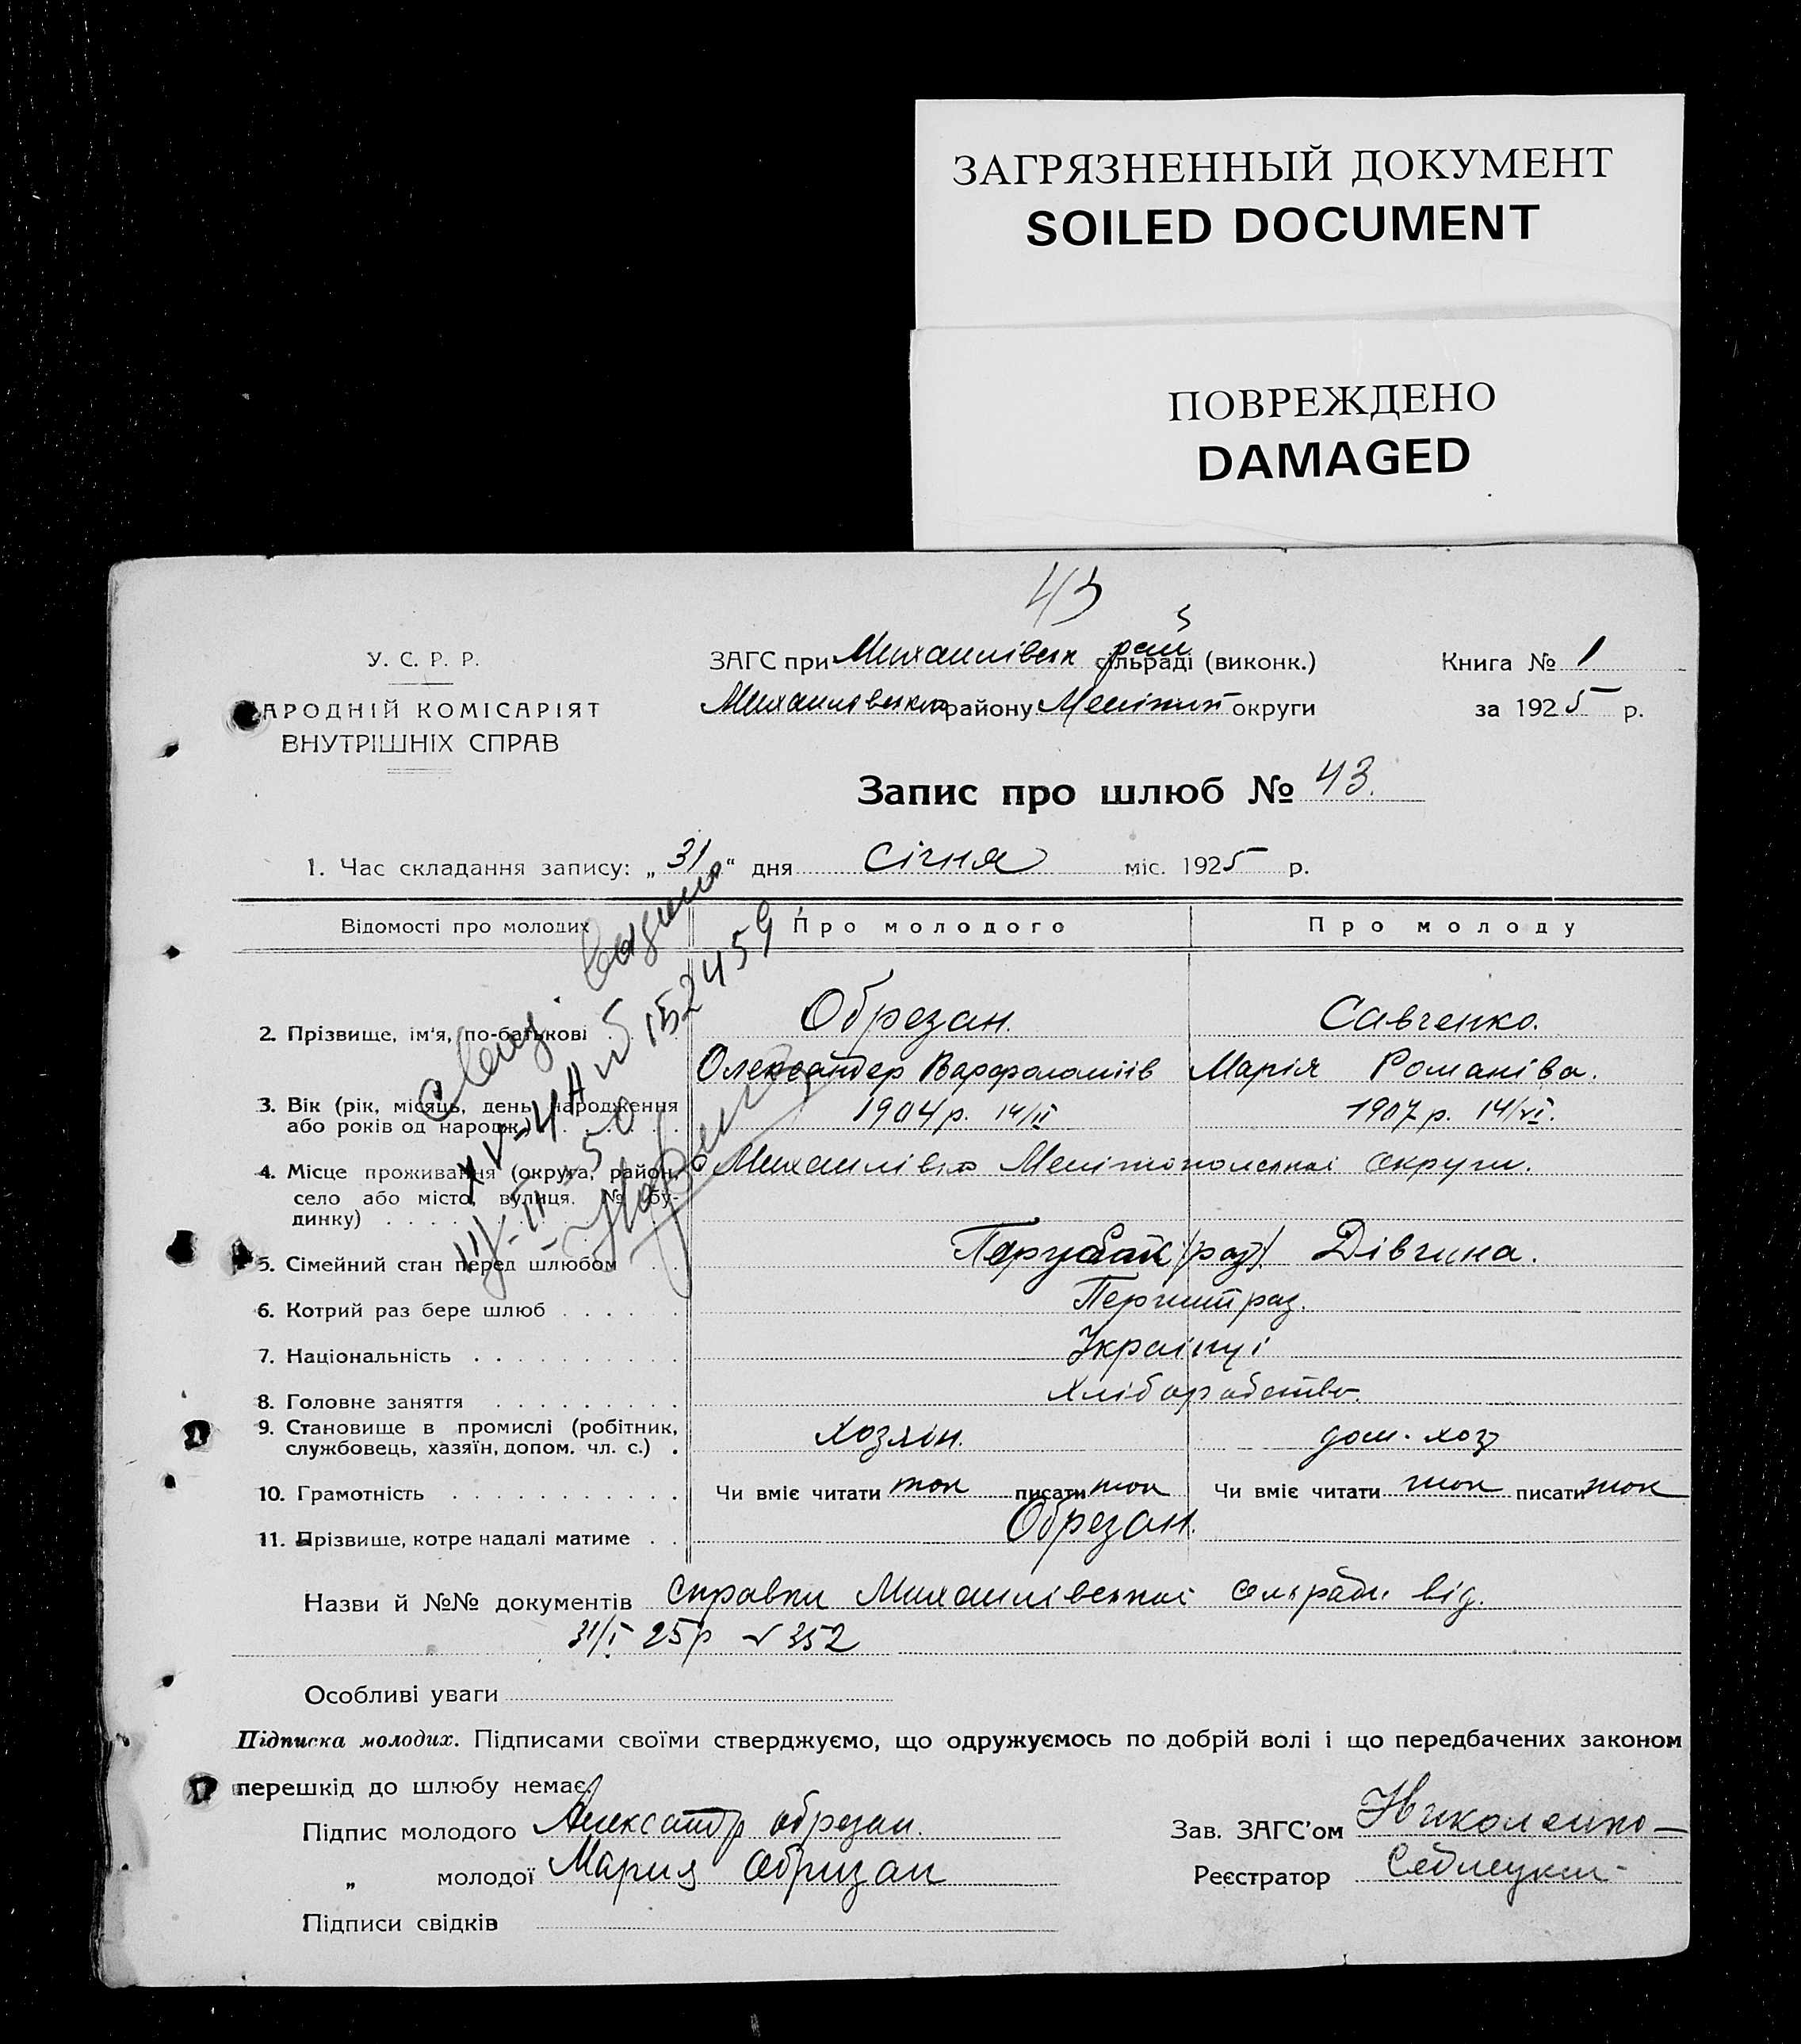 ЗАГРЯЗНЕННЫЙ ДОКУМЕНТ
SOILED DOCUMENT
ПОВРЕЖДЕНО
DAMAGED
43
У. С. Р. Р.
НАРОДНІЙ КОМІСАРІЯТ
ВНУТРІШНІХ СПРАВ
ЗАГС при Михайлівск рай сільраді (виконк.)
района Меліт округи
Книга № 1
за 1925 р.
Запис про шлюб № 43.
1. Час складання запису: „31" дня січня міс. 1925 р.
Відомості про молодих Про молодого Про молоду
2. Прізвище, ім'я, по-батькові Обрезан. Савченко.
Олександер Варфоломіів Марія Романіва.
3. Вік (рік, місяць, день народження або років од народж.) 1904 р. 14/II 1907 р. 14/VI.
4. Місце проживання (округа, район, село або місто, вулиця. № будинку) с Михайлівка Мелітопольскоі округи.
5. Сімейний стан перед шлюбом Парубок Дівчина.
6. Котрий раз бере шлюб Перший раз.
7. Національність Украінці
8. Головне заняття Хліборобство.
9. Становище в промислі (робітник, службовець, хазяїн, допом. чл. с.) Хозяін. дом. хоз
10. Грамотність Чи вміє читати так писати так Чи вміє читати так писати так
11. Прізвище, котре надалі матиме Обрезан.
Назви й №№ документів Справки Михайлівськоі сельради від.
31/I 25р № 352
Особливі уваги
Підписка молодих. Підписами своїми стверджуємо, що одружуємось по добрій волі і що передбачених законом
перешкід до шлюбу немає.
Підпис молодого Александр обрезан. Зав. ЗАГС'ом Николенко
„ молодої Мария Обризан Реєстратор
Підписи свідків
152459